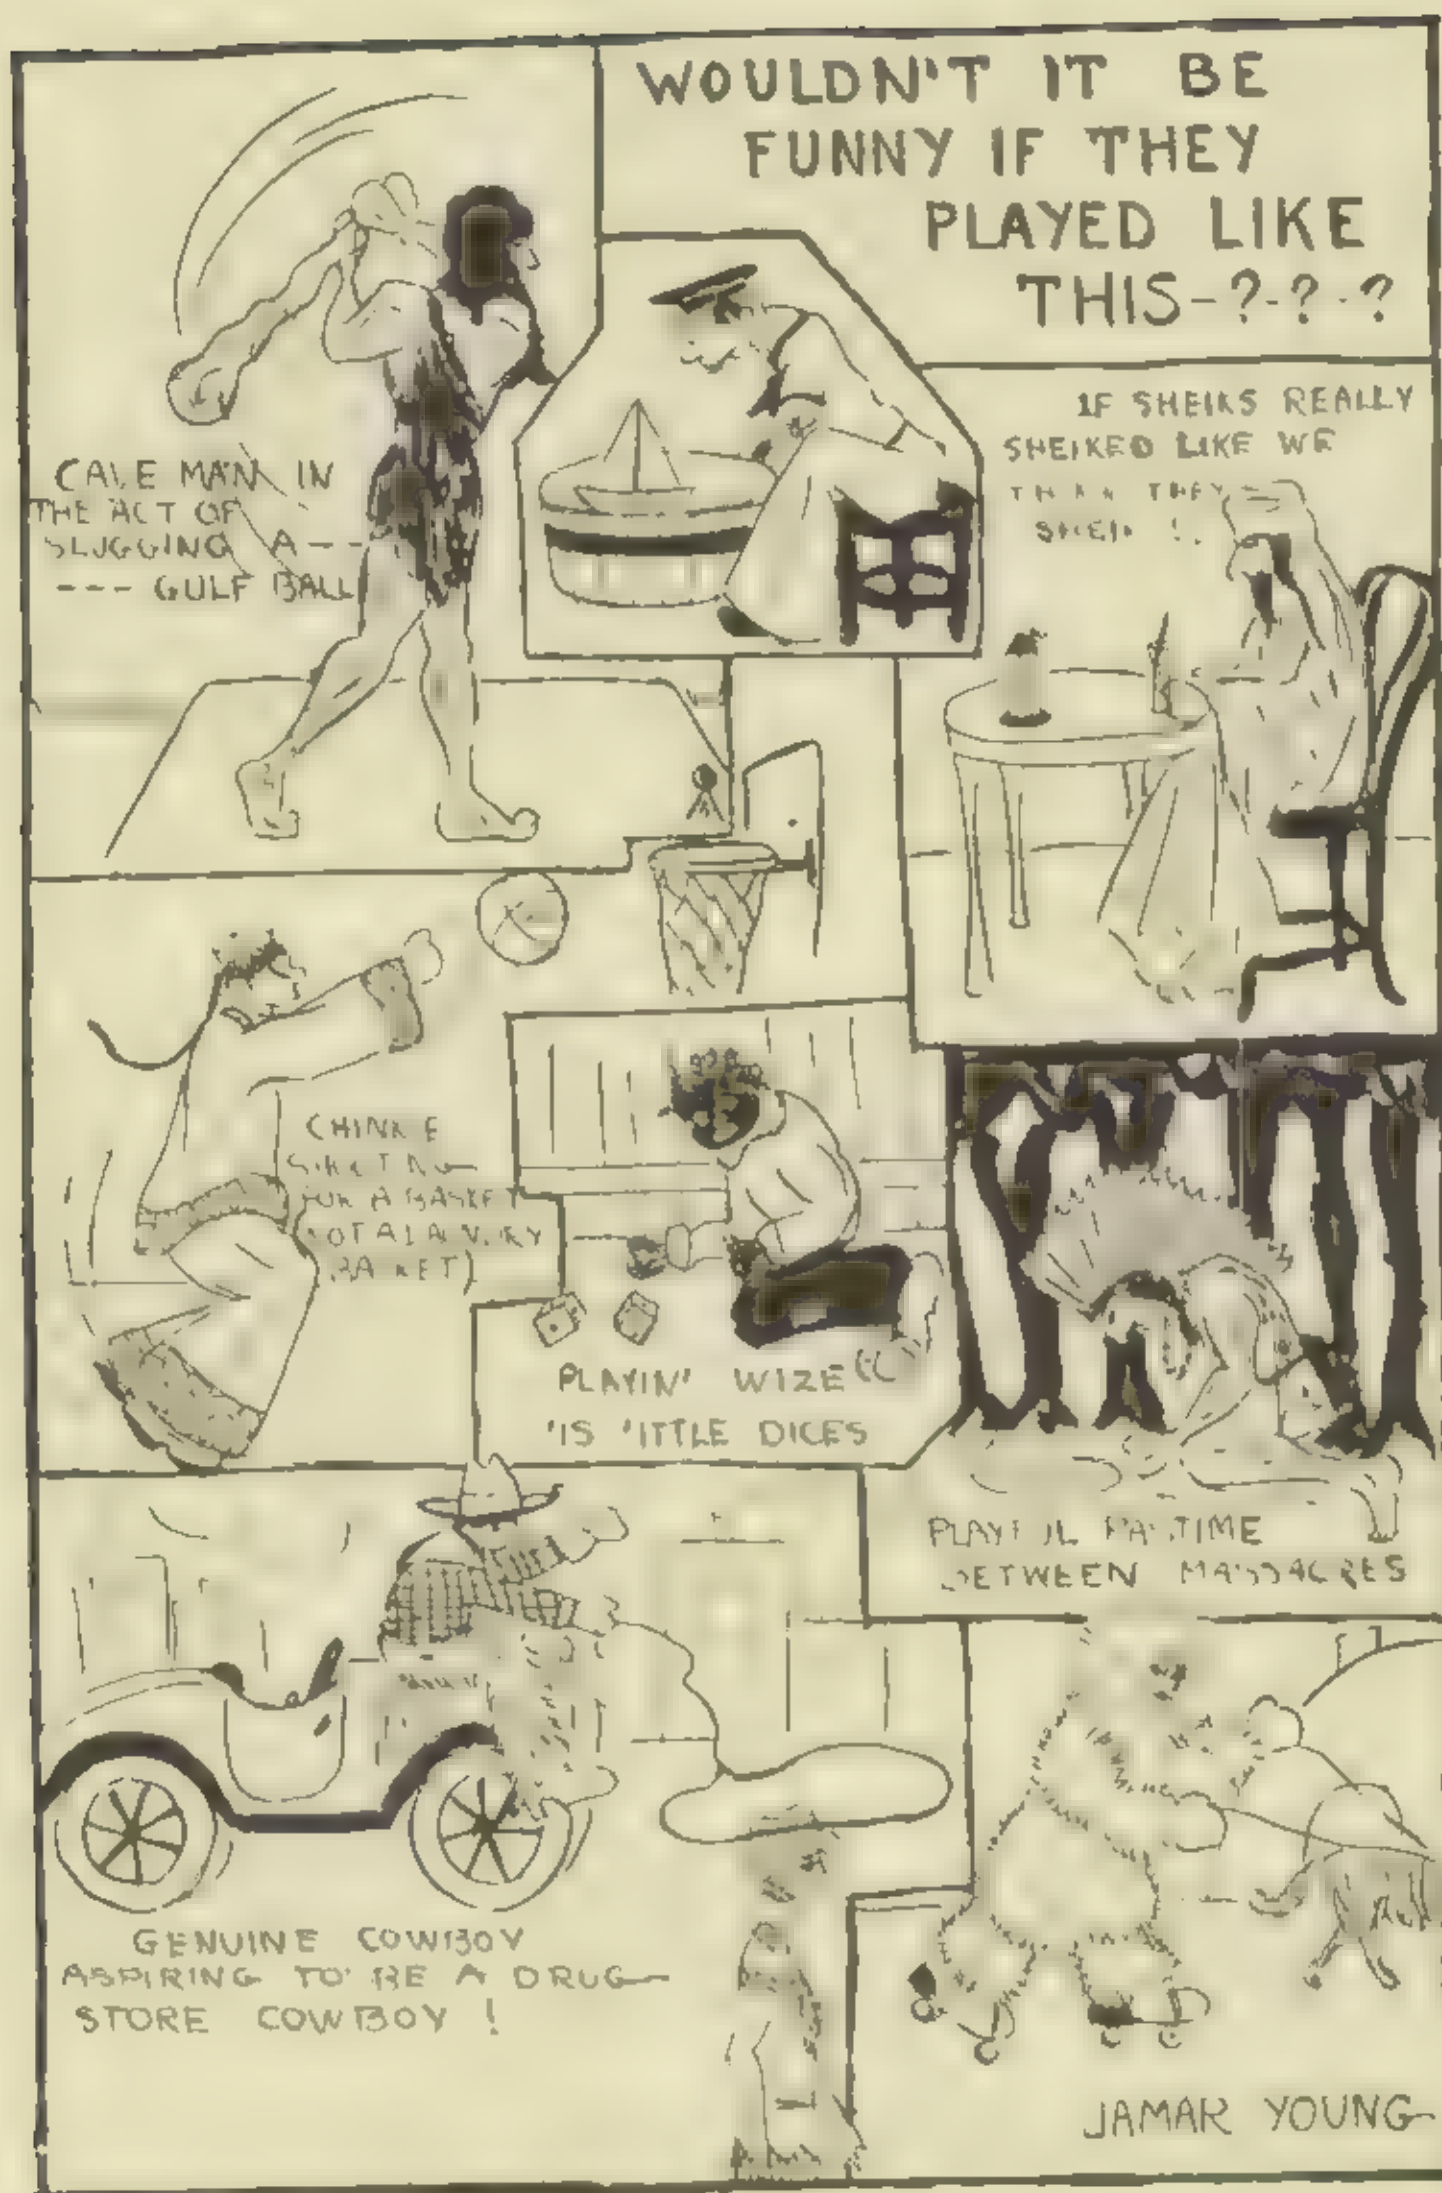 WOULDN'T IT BE
FUNNY IF THEY
PLAYED LIKE
THIS-?-?-?
CAVE MAN IN
THE ACT OF
SLUGGING A--
--- GULF BALL
IF SHEIKS REALLY
SHEIKED LIKE WE
THINK THEY
SHEIK !.
FOR A BASKET
BASKET)
PLAYIN' WIZE
'IS 'ITTLE DICES
PLAYFUL PASTIME
BETWEEN MASSACRES
GENUINE COWBOY
ASPIRING TO BE A DRUG
STORE COWBOY !
JAMAR YOUNG